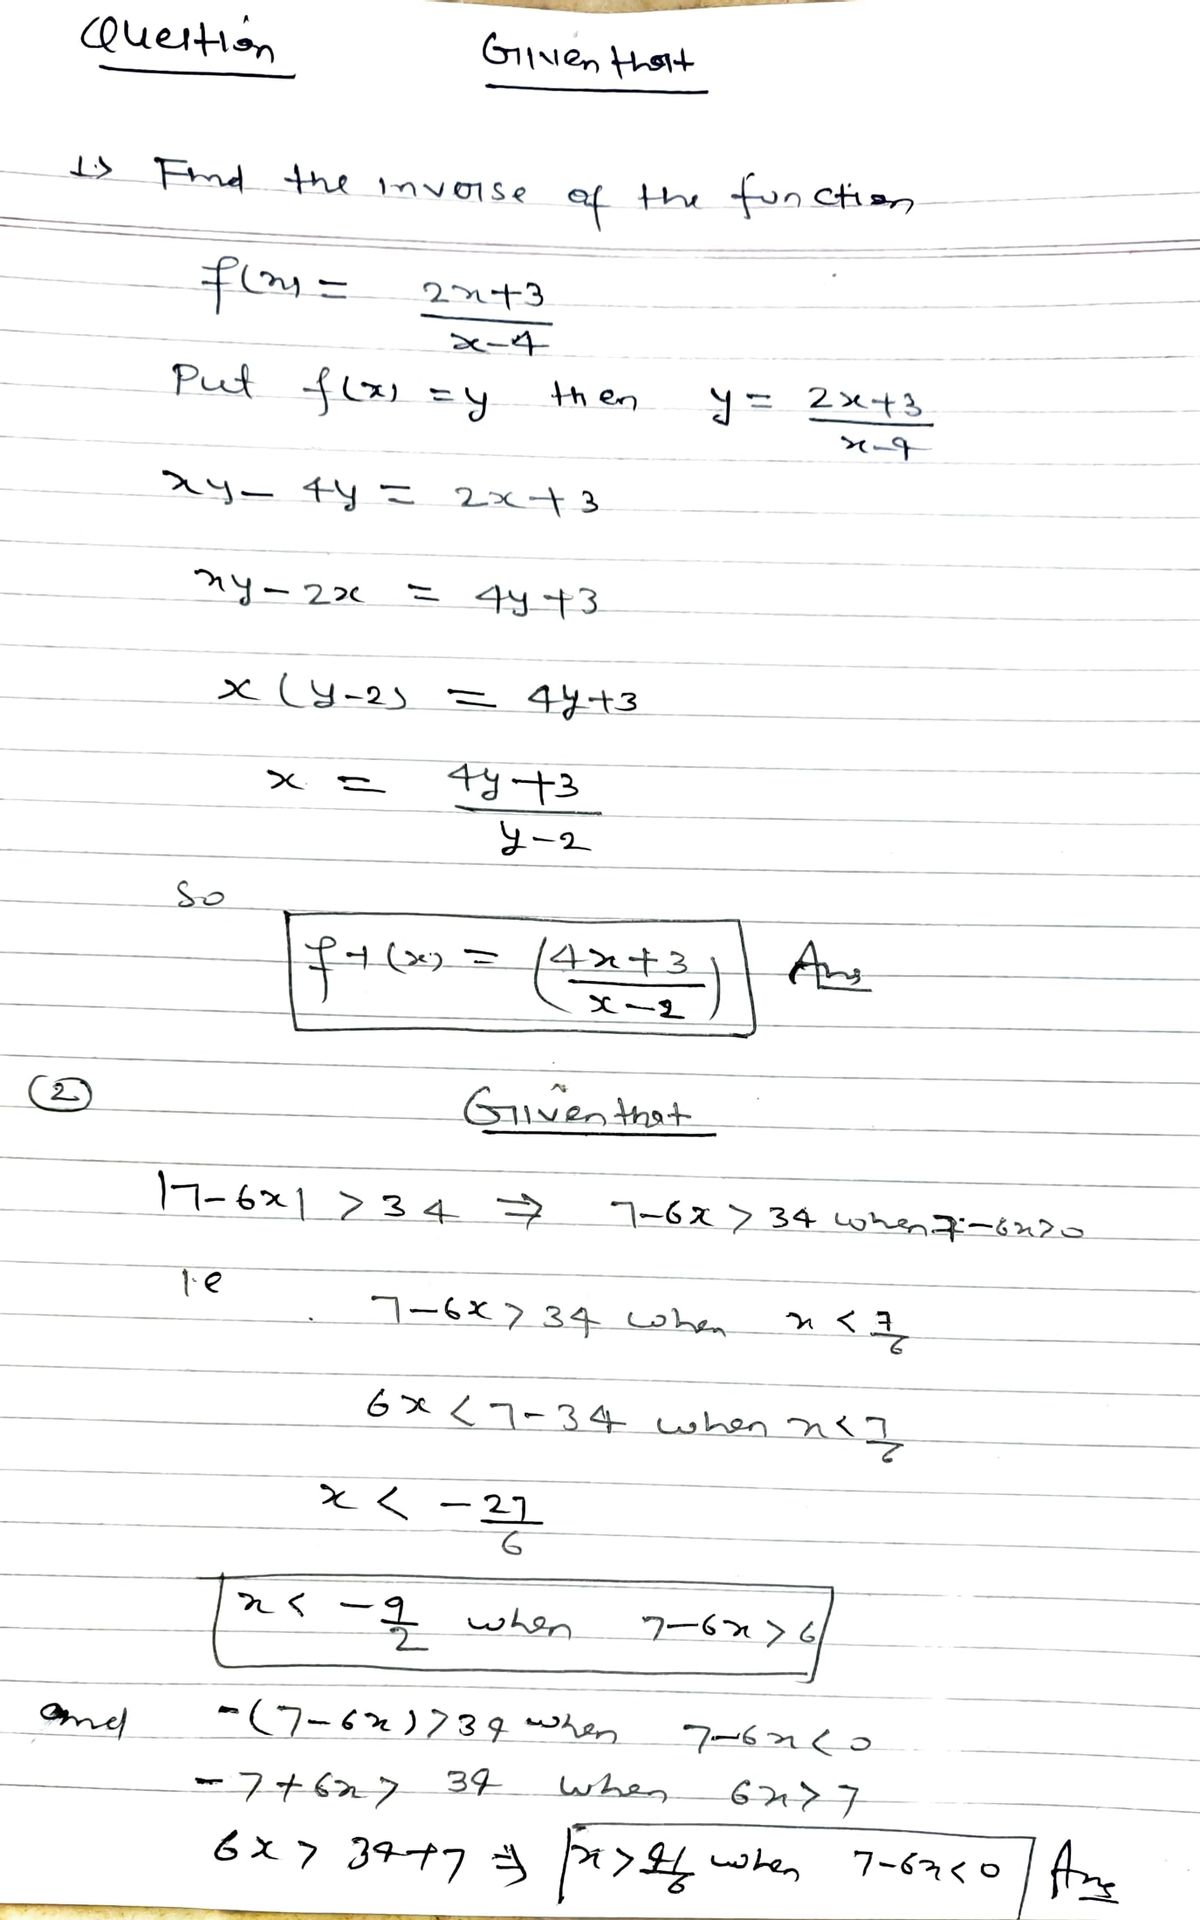 Question
Given that
1.> Find the inverse of the function
f(x) = (2x+3)/(x-4)
Put f(x) = y then y = (2x+3)/(x-4)
xy - 4y = 2x+3
xy - 2x = 4y+3
x(y-2) = 4y+3
x = (4y+3)/(y-2)
So
f-1(x) = ((4x+3)/(x-2)) Ans
(2)
Given that
|7-6x| > 34 ⇒ 7-6x > 34 when 7-6x>0
i.e
7-6x > 34 when x < 7/6
6x < 7-34 when x < 7/6
x < -27/6
x < -9/2 when 7-6x > 6
and -(7-6x) > 34 when 7-6x < 0
-7+6x > 34 when 6x > 7
6x > 34+7 ⇒ x > 41/6 when 7-6x < 0 Ans